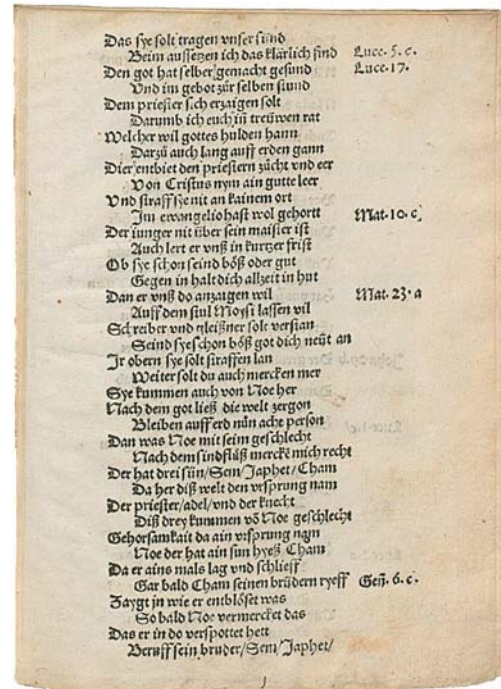 Das sye solt tragen vnser sünd
Beim aussetzen ich das klärlich find Luce. 5. c.
Den got hat selber gemacht gesund Luce. 17.
Vnd im gebot zůr selben stund
Dem priester sich erzaigen solt
Darumb ich euch in treüwen rat
Welcher wil gottes hulden hann
Darzů auch lang auff erden gann
Dier entbiet den priestern zücht vnd eer
Von Cristus nym ain gutte leer
Vnd straff sye nit an kainem ort
Im ewangelio hast wol gehortt Mat. 10. c
Der iunger nit über sein maister ist
Auch lert er vnß in kurtzer frist
Ob sye schon seind böß oder gut
Gegen in halt dich allzeit in hut
Dan er vnß do anzaigen wil Mat. 23. a
Auff dem stul Moysi lassen vil
Schreiber vnd gleißner solt verstan
Seind sye schon böß got dich neüt an
Ir obern sye solt straffen lan
Weiter solt du auch mercken mer
Sye kummen auch von Noe her
Nach dem got ließ die welt zergon
Bleiben auff erd nün acht person
Dan was Noe mit seim geschlecht
Nach dem sindfluß merckē mich recht
Der hat drei sün/Sem/Japhet/Cham
Da her diß welt den vrsprung nam
Der priester/adel/vnd der knecht
Diß drey kummen vō Noe geschlecht
Gehorsamkait da ain vrsprung nam
Noe der hat ain sun hyeß Cham
Da er ains mals lag vnd schlieff
Gar bald Cham seinen brüdern ryeff Geñ. 6. c.
Zaygt jn wie er entblöset was
So bald Noe vermercket das
Das er in do verspottet hett
Berüff sein bruder/Sem/Japhet/